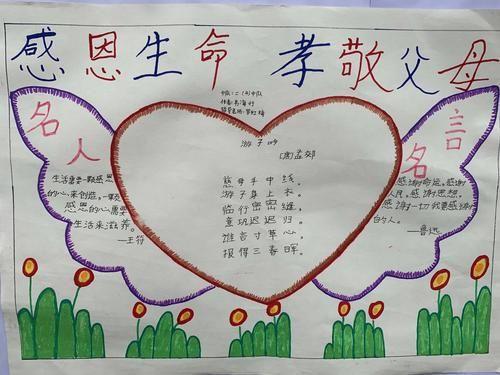 感恩生命 孝敬父母
名人
名言
游子吟
(唐)孟郊
慈母手中线。
游子身上衣。
临行密密缝，
意恐迟迟归。
谁言寸草心，
报得三春晖。
生活需要一颗感恩
的心来创造，一颗
感恩的心需要
生活来滋养。
—王符
感谢命运，感谢
人民，感谢思想，
感谢一切我要感谢
的人。
—鲁迅